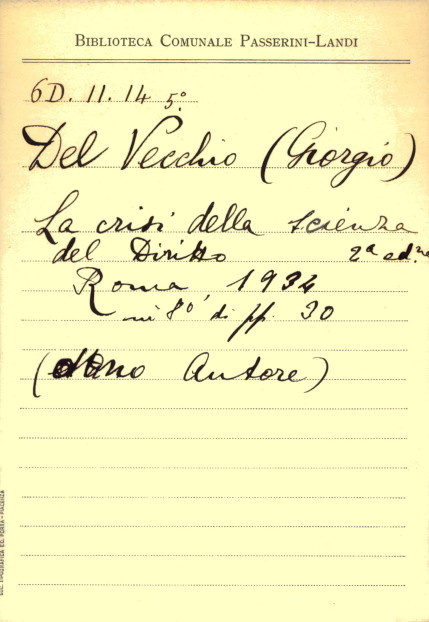 BIBLIOTECA COMUNALE PASSERINI-LANDI
6D. 11. 14 5°.
Del Vecchio (Giorgio)
La crisi della scienza
del Diritto 2ª ed.ne
Roma 1934
in 8° di pp. 30
(dono Autore)